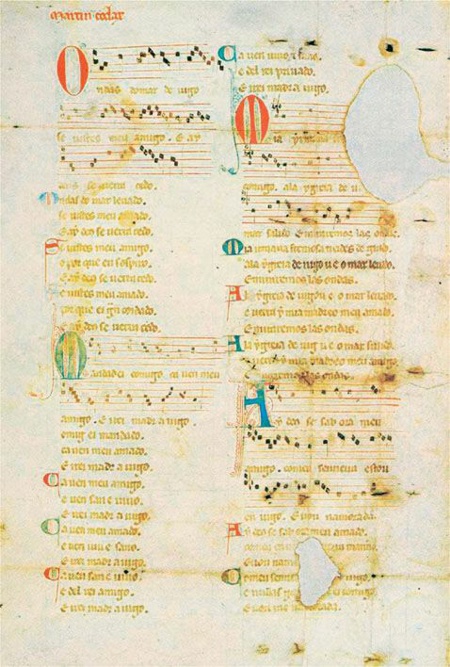 Martin codax
Ondas do mar de uigo
se uistes meu amigo. E ay
deus se uerra cedo.
Ondas do mar leuado.
se uistes meu amado.
E ay deus se uerra cedo.
Se uistes meu amigo.
o por que eu sospiro.
E ay deus se uerra cedo.
Se uistes meu amado.
por que ei gran coidado.
E ay deus se uerra cedo.
Mandadei comigo. ca uen meu
amigo. E irei madr a uigo.
Comigo ei mandado.
ca uen meu amado.
E irei madr a uigo.
Ca uen meu amigo.
e uen san e uiuo.
E irei madr a uigo.
Ca uen meu amado.
e uen uiu e sano.
E irei madr a uigo.
Ca uen san e uiuo.
e del rei amigo.
E irei madr a uigo.
Ca uen uiu e sano.
e del rei priuado.
E irei madr a uigo.
Mia
comigo. a la ygreia de
mar salido E miraremos las ondas.
Mia irmana fremosa treides de grado.
a la ygreia de uigo u e o mar leuado.
E miraremos las ondas.
A la ygreia de uigo u e o mar leuado.
e uerra y mia madre o meu amado.
E miraremos las ondas.
A la ygreia de uigo u e o mar salido
e uerra y mia madre o meu amigo.
E miraremos las ondas.
Ay deus se sab ora meu
amigo. com eu senneira estou
en uigo. E uou namorada.
Ay deus se sab ora meu amado.
E uou
Com eu uigo.
e
E uou